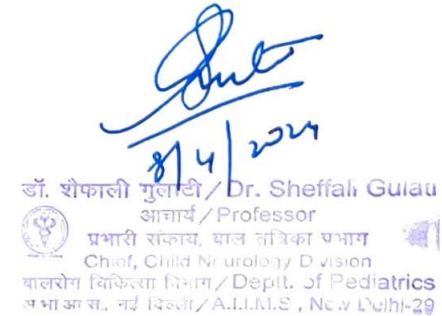 8/4/2024
डॉ. शैफाली गुलाटी / Dr. Sheffali Gulati
आचार्य / Professor
प्रभारी संकाय, बाल तंत्रिका प्रभाग
Chief, Child Neurology Division
बालरोग चिकित्सा विभाग / Deptt. of Pediatrics
अ.भा.आ.सं., नई दिल्ली / A.I.I.M.S., New Delhi-29